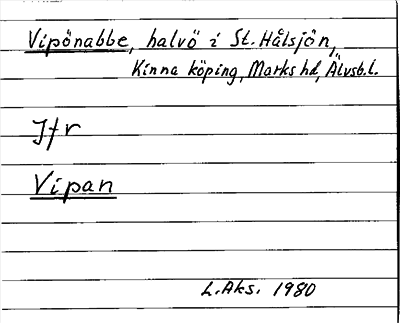 Vipönabbe, halvö i St. Hålsjön,
Kinna köping, Marks hd, Älvsb.l.
Jfr
Vipan
L.Aks. 1980